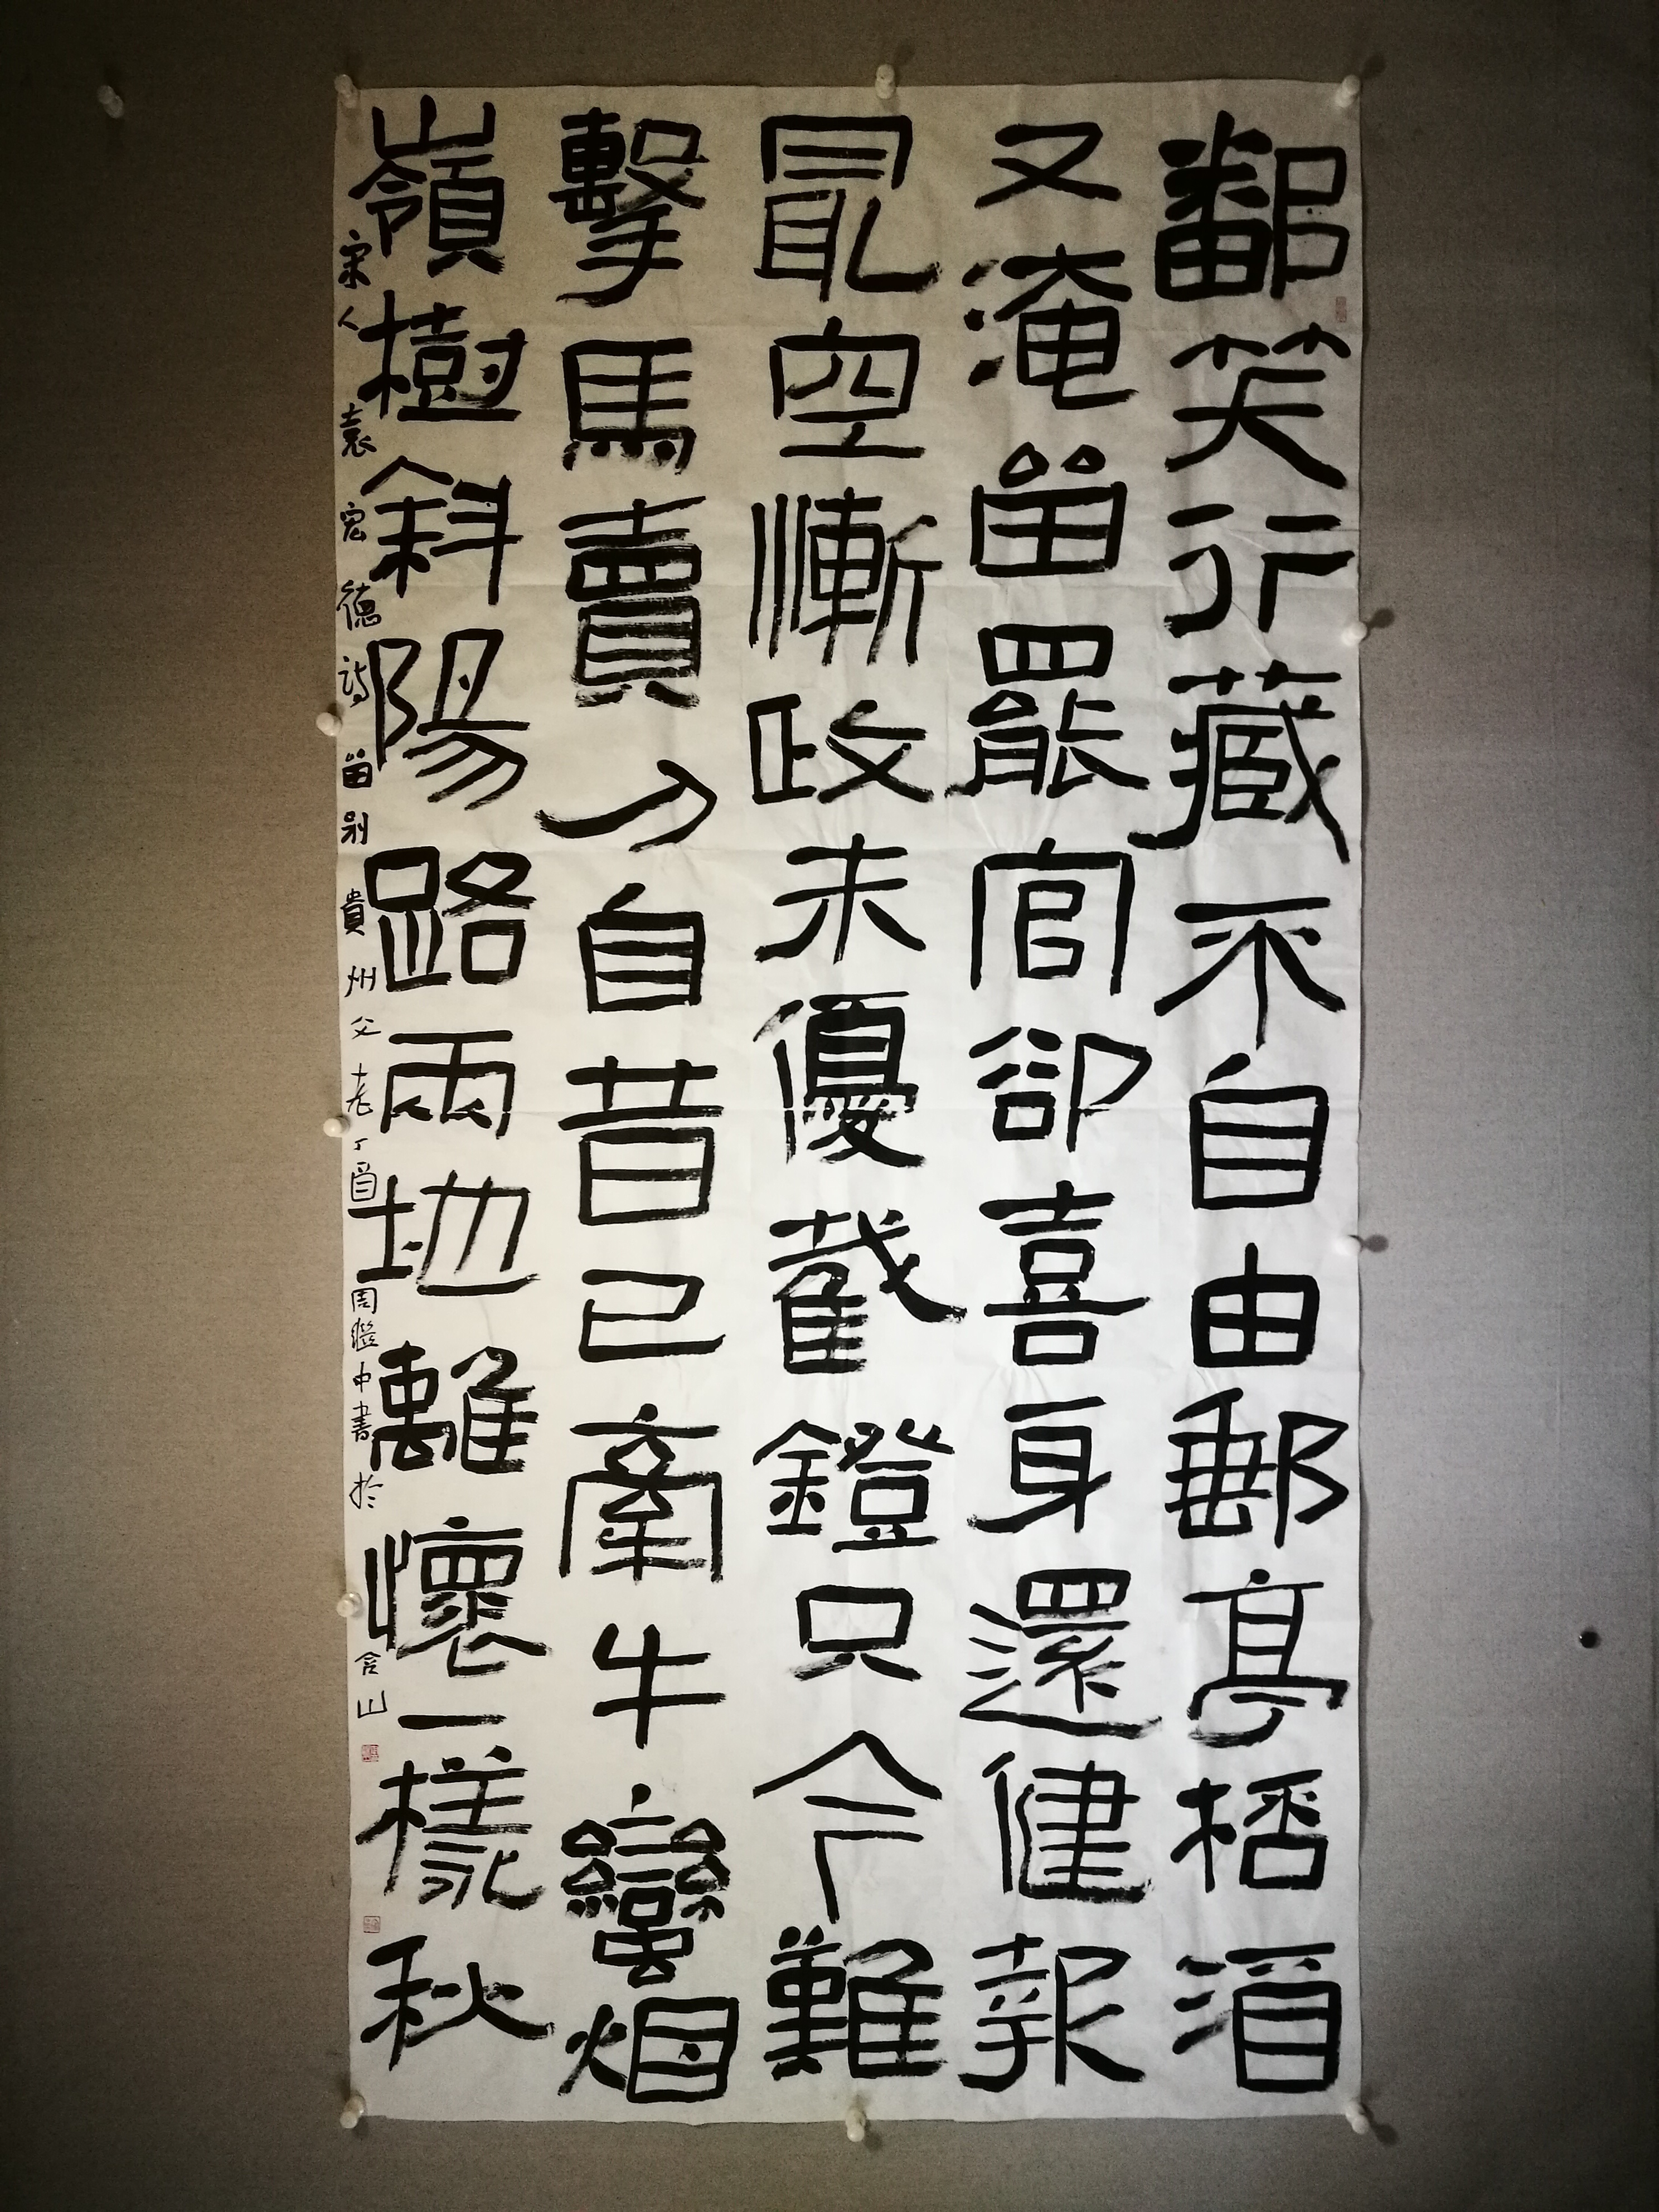 鄱笑行藏不自由郵亭桮酒
又淹留罷官卻喜身還健報
最空慚政未優截鐙只今難
擊馬賣刀自昔已牽牛蠻烟
嶺樹斜陽路兩地離懷一樣秋
宋人袁宏德詩留別貴州父老丁酉周繼中書於含山